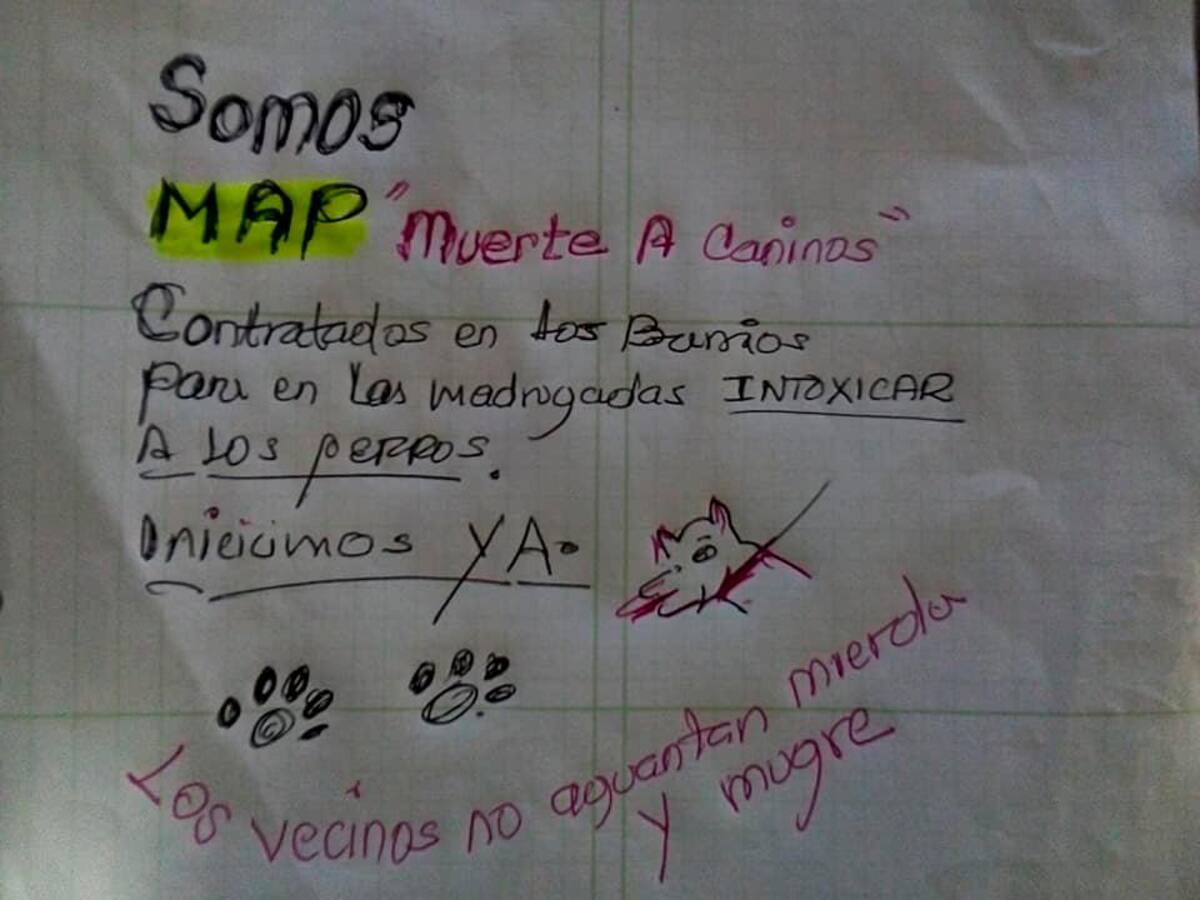 Somos
MAP "Muerte A Caninos"
Contratados en los Barrios
para en las madrugadas INTOXICAR
A LOS PERROS.
Iniciamos YA.
Los vecinos no aguantan mierda
y mugre